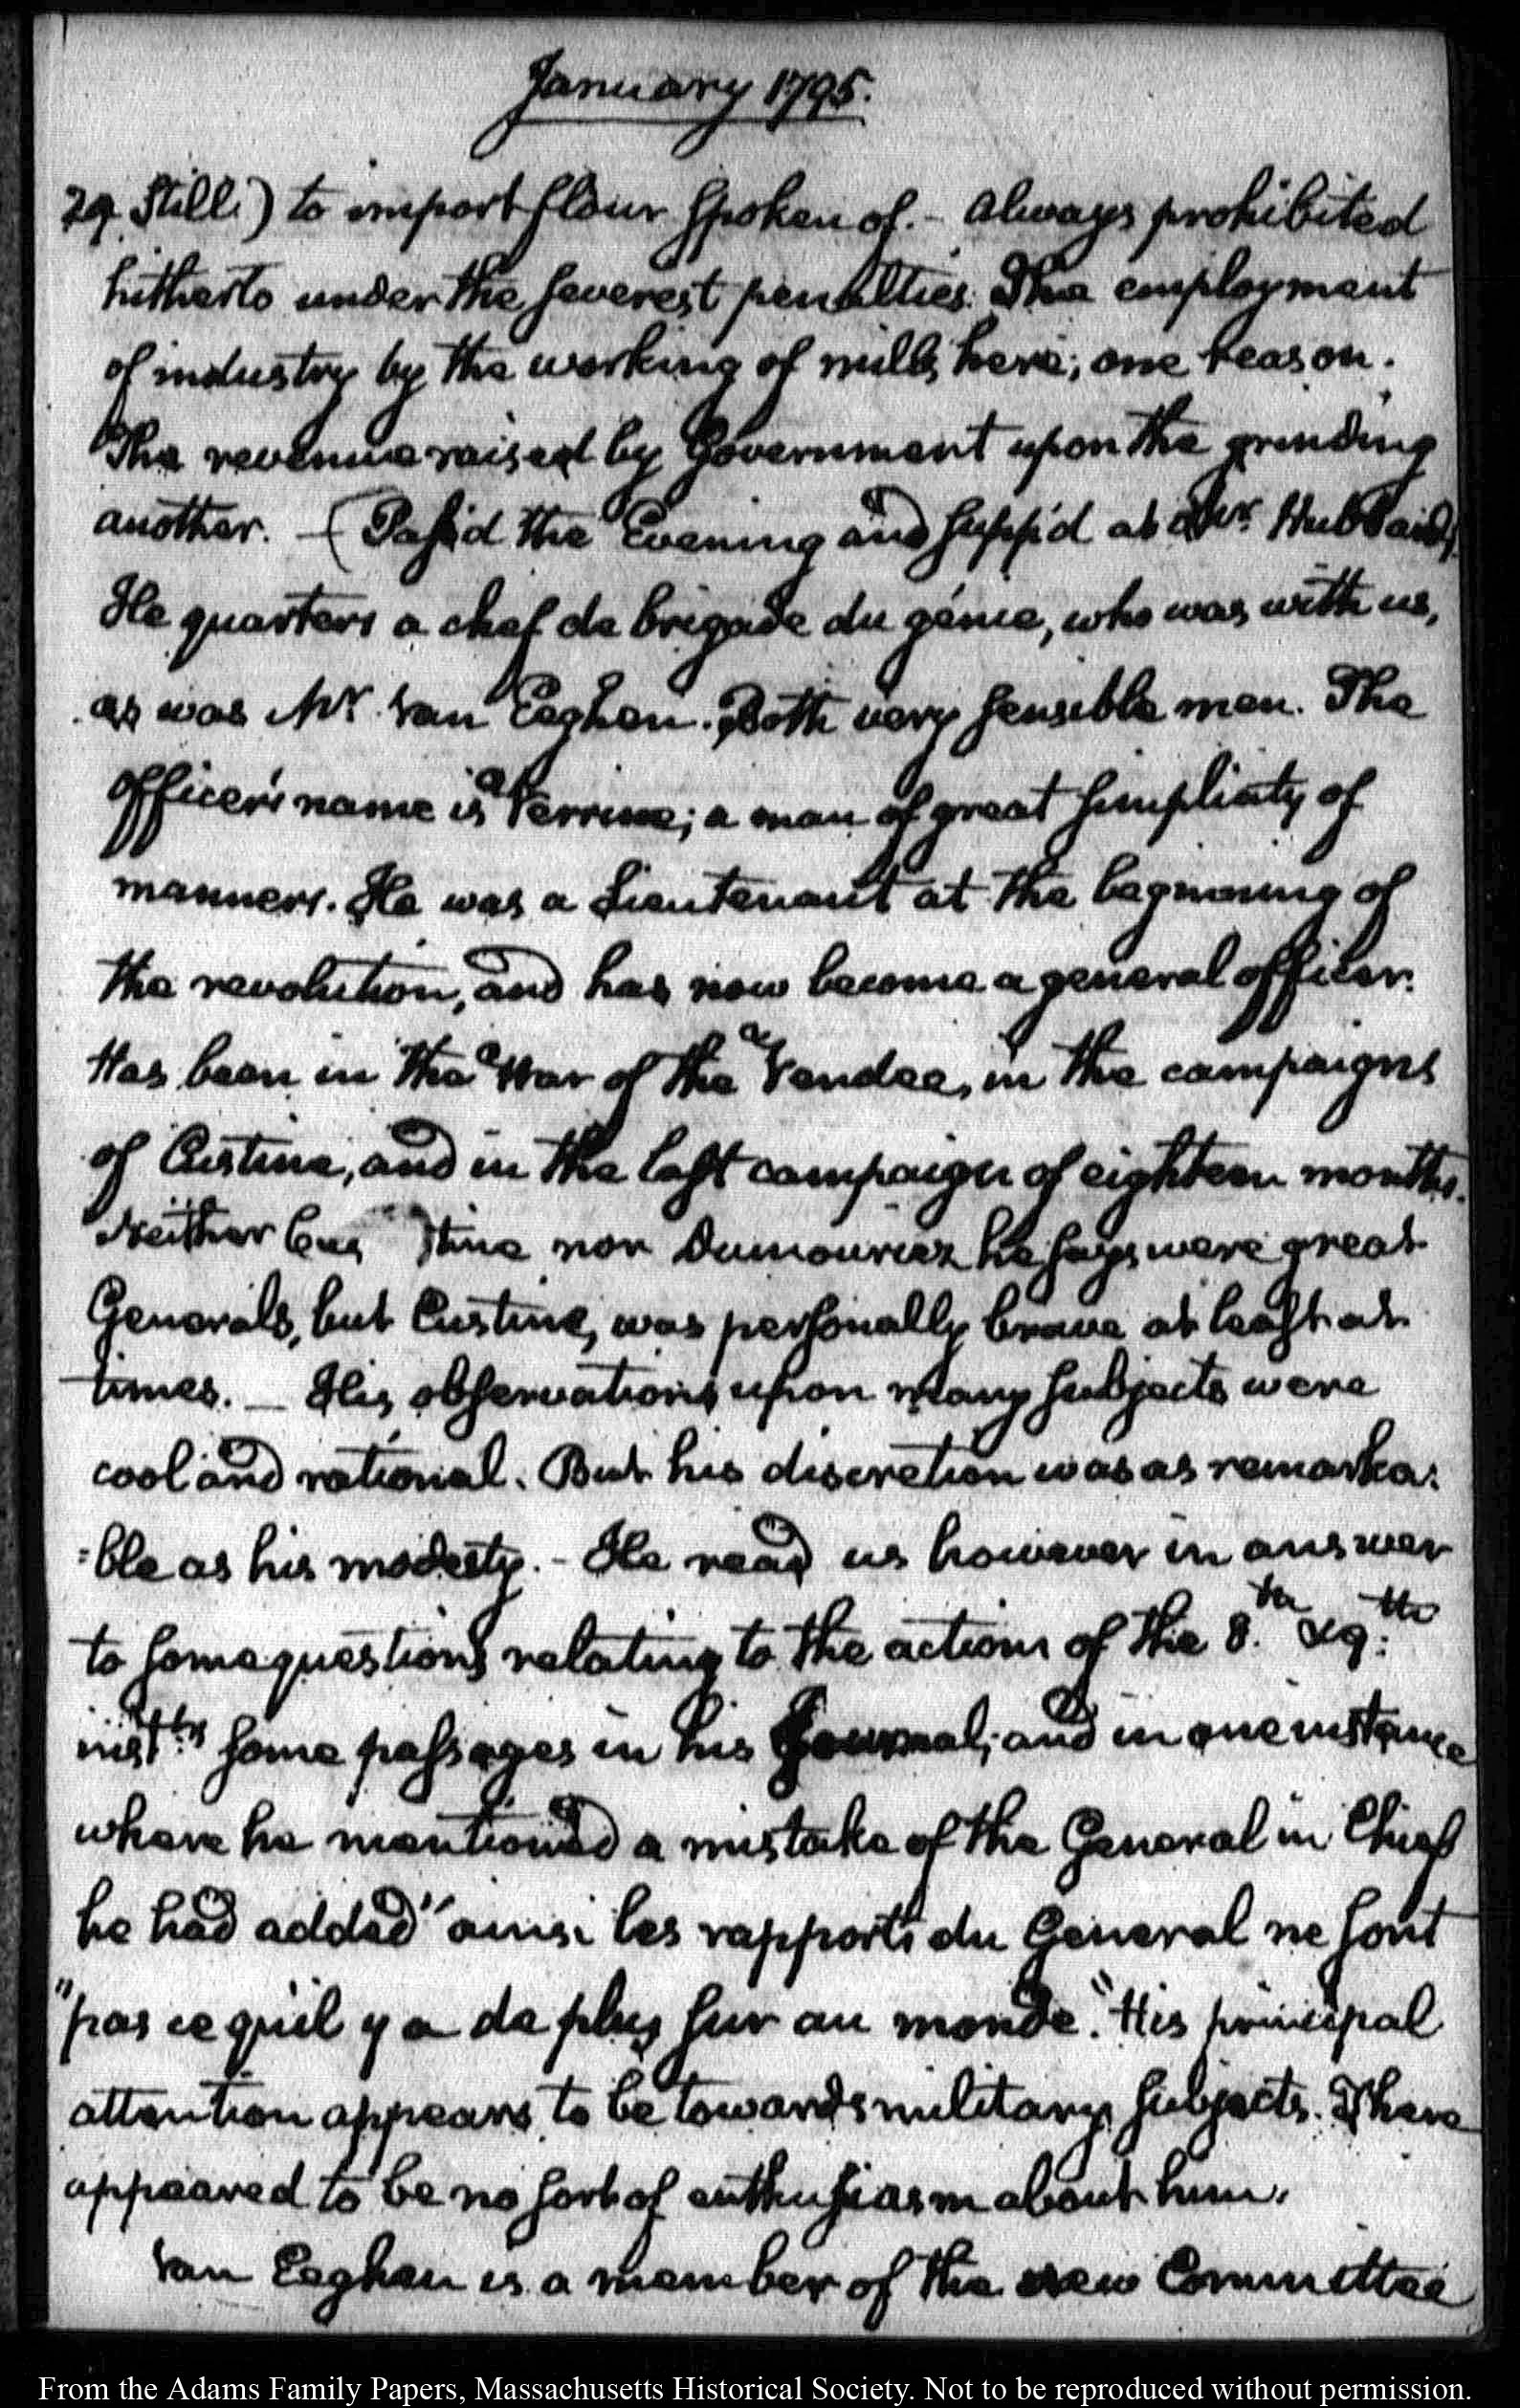 January 1795.
29. Still.) to import flour spoken of. – Always prohibited
hitherto under the severest penalties. The employment
of industry by the working of mills here; one reason.
The revenue raised by Government upon the grinding
another. – (Pass'd the Evening and supp'd at Mr. Hubbard's.
He quarters a chef de brigade du génie, who was with us,
as was Mr. Van Eeghen. Both very sensible men. The
officer's name is Verrine; a man of great simplicity of
manners. He was a Lieutenant at the beginning of
the revolution, and has now become a general officer.
Has been in the War of the Vendee, in the campaigns
of Custine, and in the last campaign of eighteen months.
Neither Cus tine nor Dumouriez he says were great
Generals, but Custine, was personally brave at least at
times. – His observations upon many subjects were
cool and rational. But his discretion was as remarka:
:ble as his modesty. – He read us however in answer
to some questions relating to the actions of the 8.th & 9.th
inst.ts some passages in his Journal; and in one instance
where he mentioned a mistake of the General in Chief
he had added "ainsi les rapports du General ne sont
"pas ce qu'il y a de plus sur au monde." His principal
attention appears to be towards military subjects. There
appeared to be no sort of enthusiasm about him.
Van Eeghen is a member of the new Committee
From the Adams Family Papers, Massachusetts Historical Society. Not to be reproduced without permission.